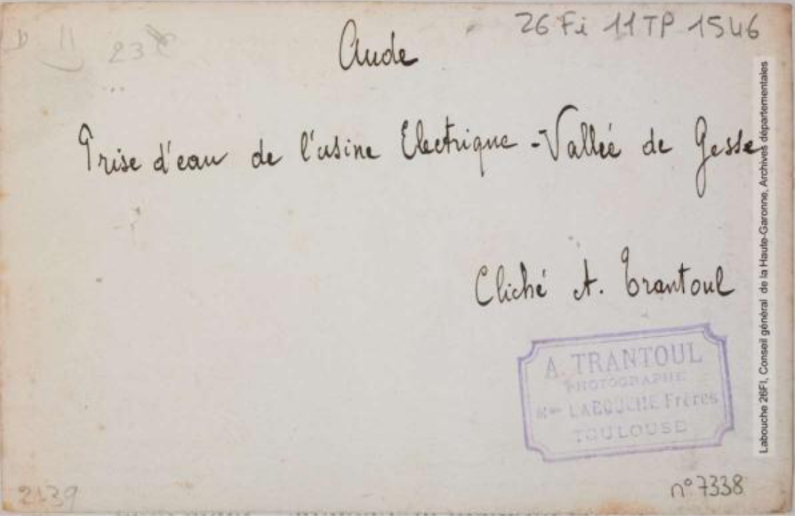 D 11
23
26 Fi 11 TP 1546
Aude
Prise d'eau de l'usine Electrique - Vallée de Gesse
Cliché A. Trantoul
A. TRANTOUL
PHOTOGRAPHE
Mon LABOUCHE Frères
TOULOUSE
2139
n° 7338
Labouche 26FI, Conseil général de la Haute-Garonne, Archives départementales